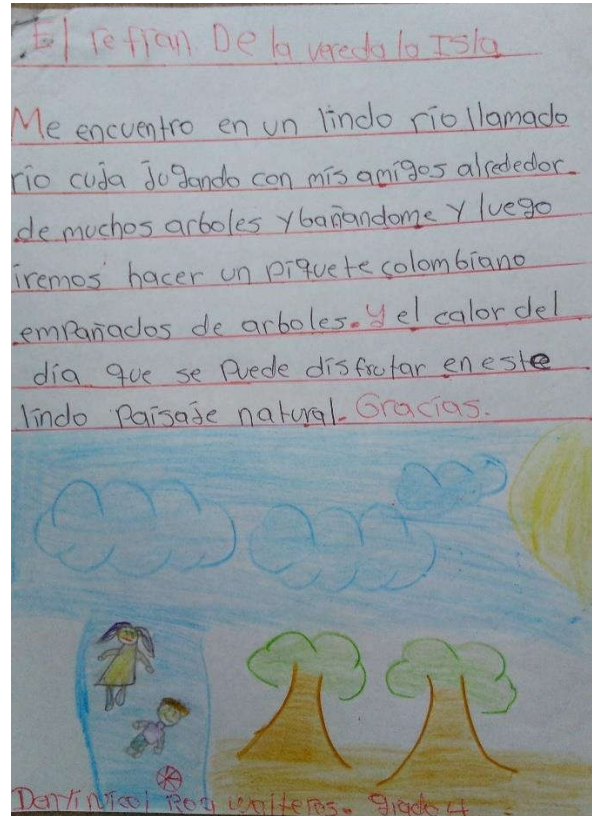 El refran. De la vereda la Isla
Me encuentro en un lindo río llamado
río cuja Jugando con mis amigos alrededor.
de muchos arboles y bañandome y luego
iremos hacer un piquete colombiano
empañados de arboles. y el calor del
día que se puede disfrutar en este
lindo paisaje natural. Gracias.
grado 4